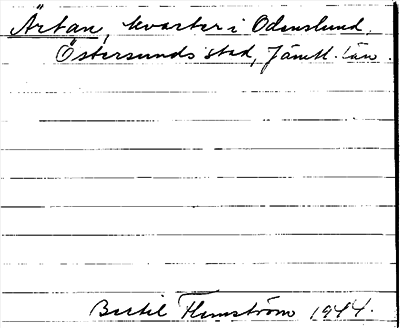 Ärtan, kvarter i Odenslund.
Östersunds stad, Jämtl. län.
Bertil Flemström 1944.